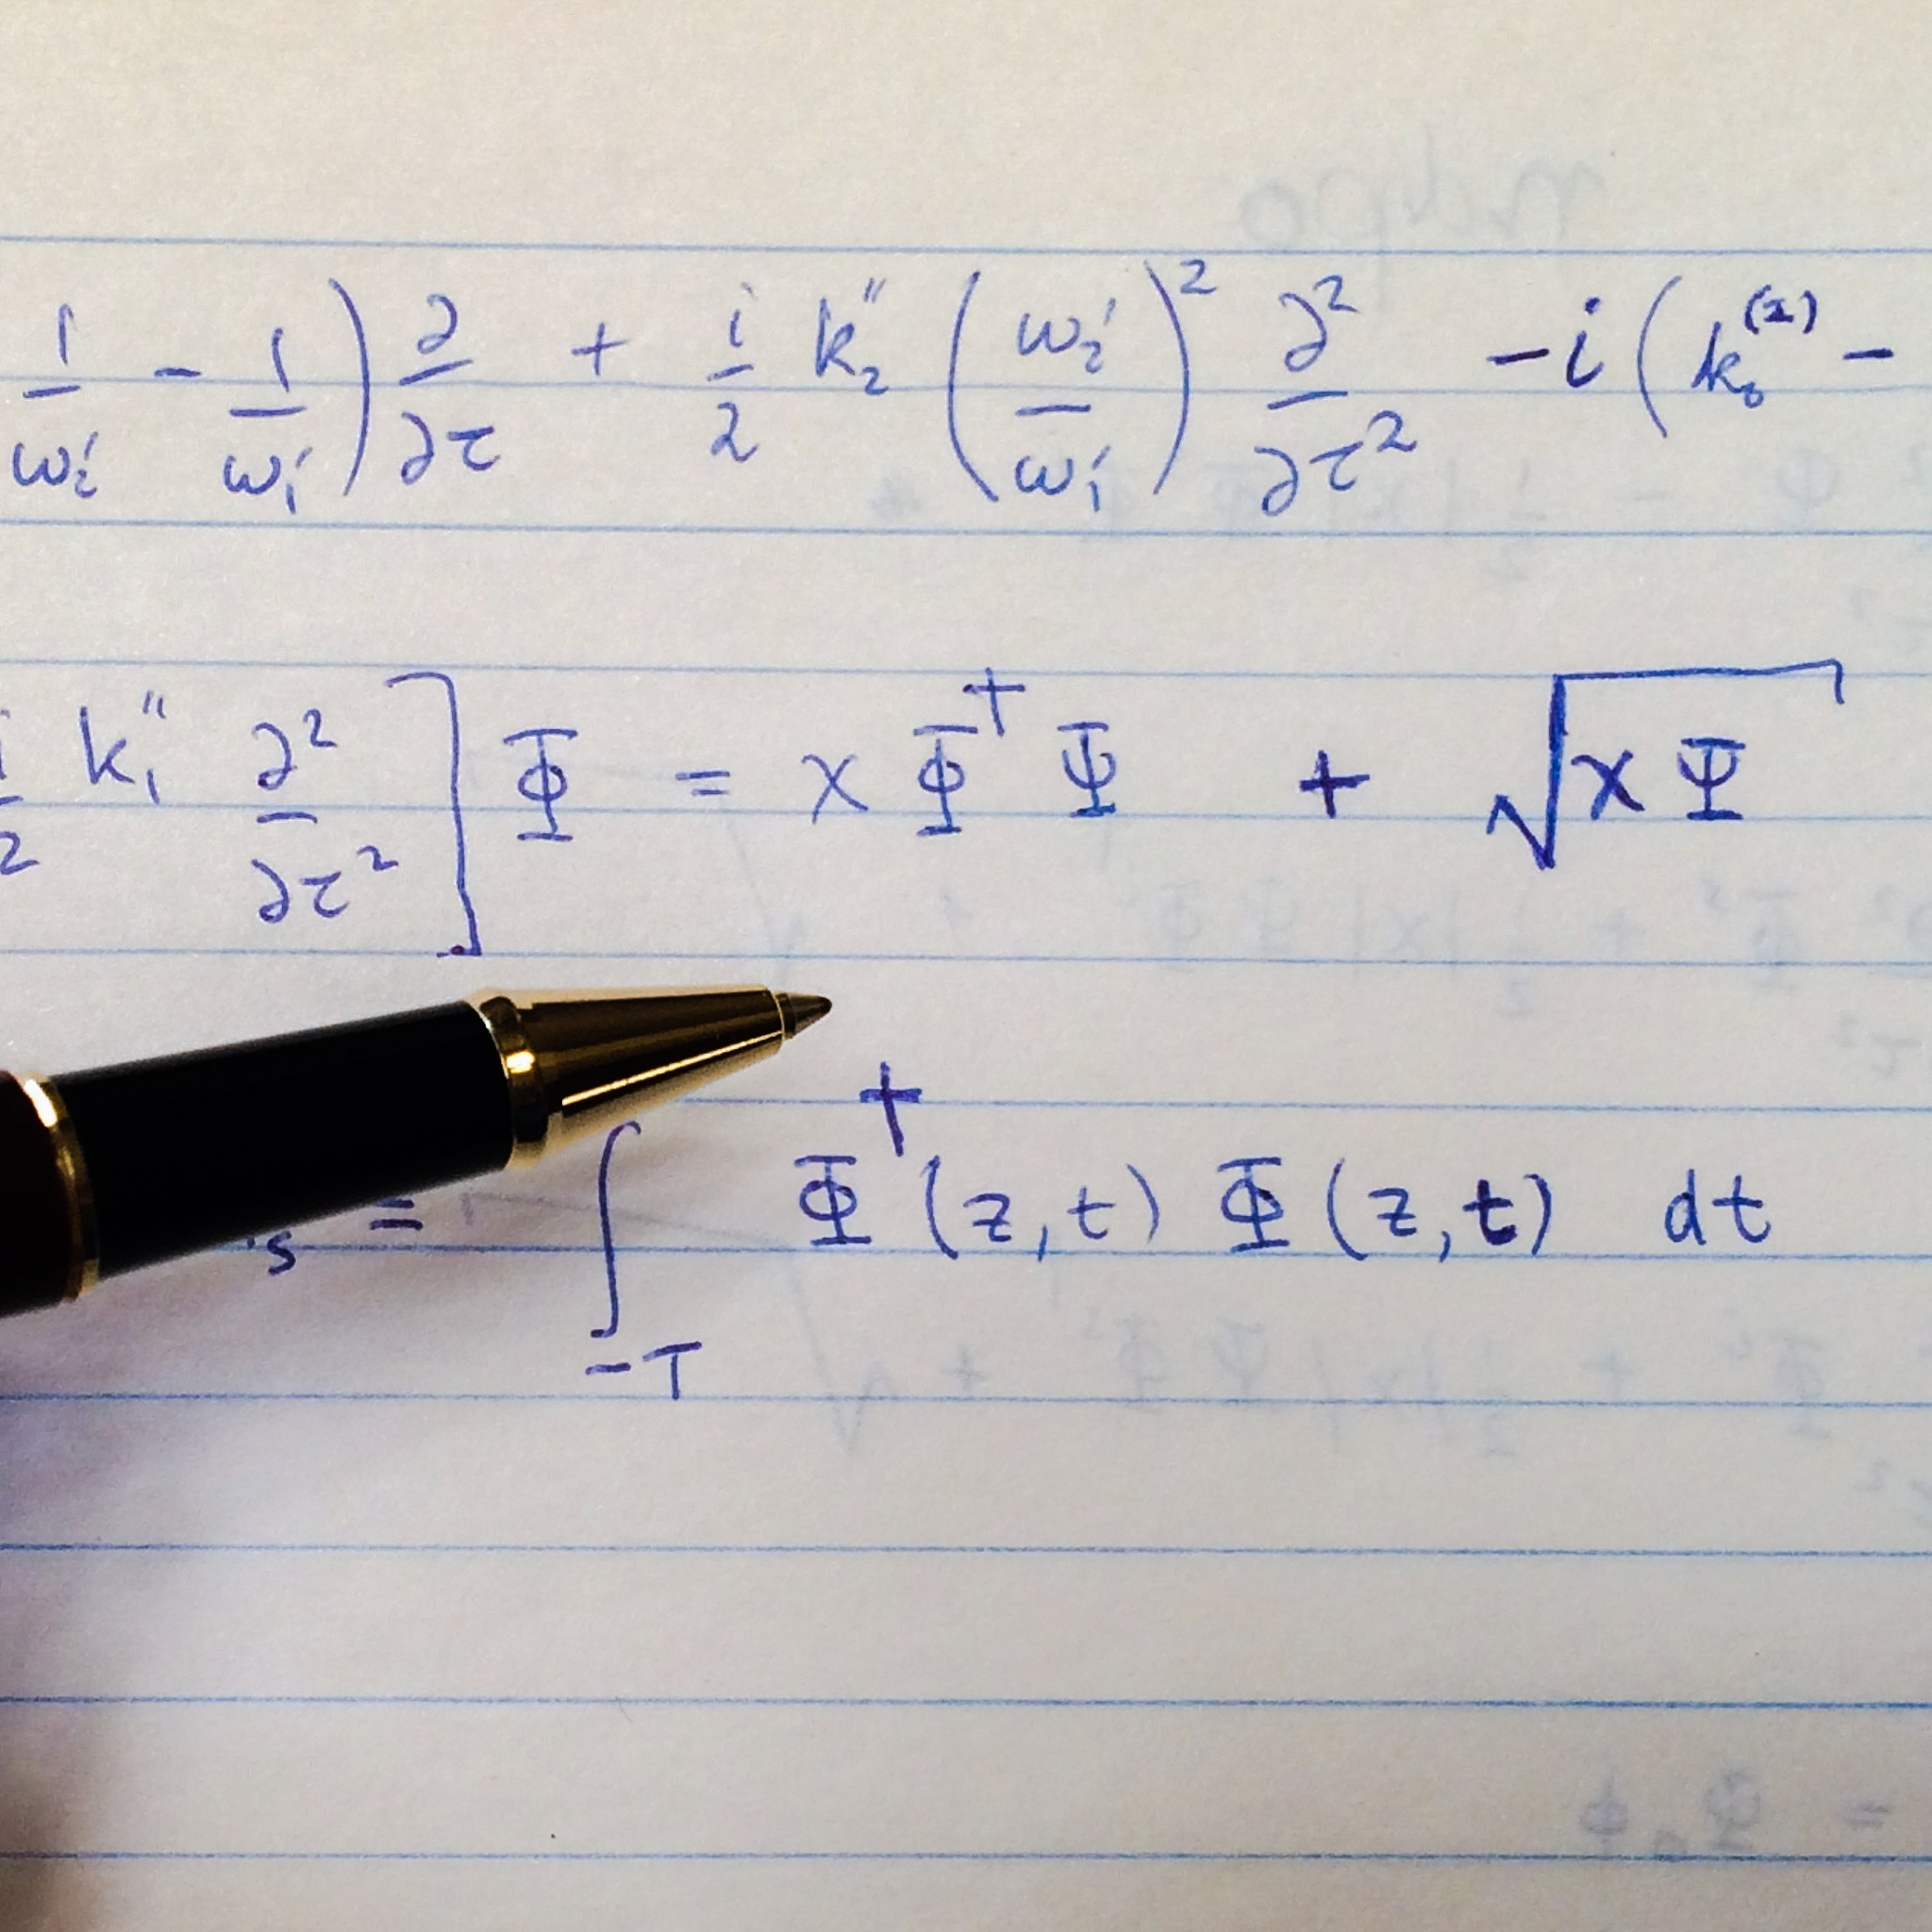 1/ω₂′ − 1/ω₁′) ∂/∂τ + i/2 k₂″ (ω₂′/ω₁′)² ∂²/∂τ² − i(k₀⁽²⁾ −
i/2 k₁″ ∂²/∂τ²] Φ = χ Φ† Ψ + √(χ Ψ)
s = ∫₋T Φ†(z,t) Φ(z,t) dt